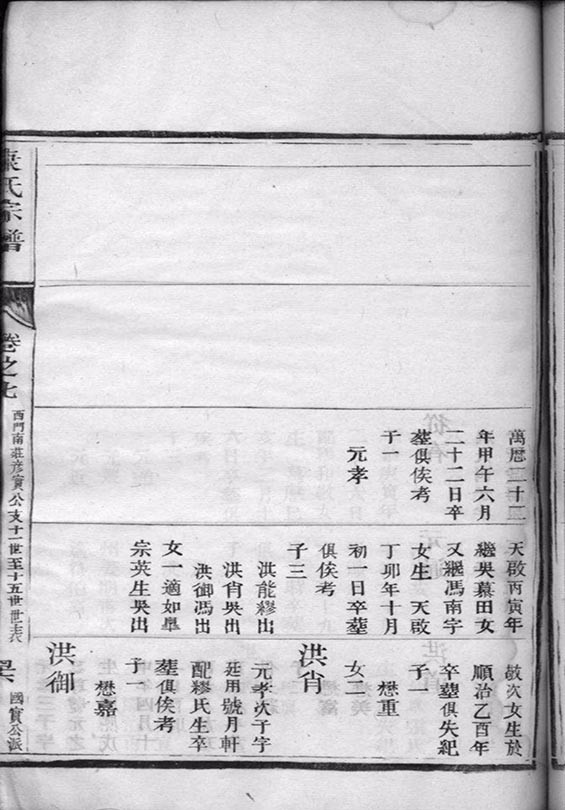 萬曆二十三
年甲午六月
二十二日卒
塟俱俟考
子一
元孝
天啟丙寅年
繼吳慕田女
又繼馮南宇
女生 天啟
丁卯年十月
初一日卒塟
俱俟考
子三
洪能繆出
洪肖吳出
洪御馮出
女一適如皋
宗英生吳出
次女生於
順治乙酉年
卒塟俱失紀
子一
懋重
女一
洪肖
元孝次子字
廷用號月軒
配繆氏生卒
塟俱俟考
子
懋嘉
洪御
氏宗譜
卷之七
西門南莊彥實公支十一世至十五世世表
國實公派